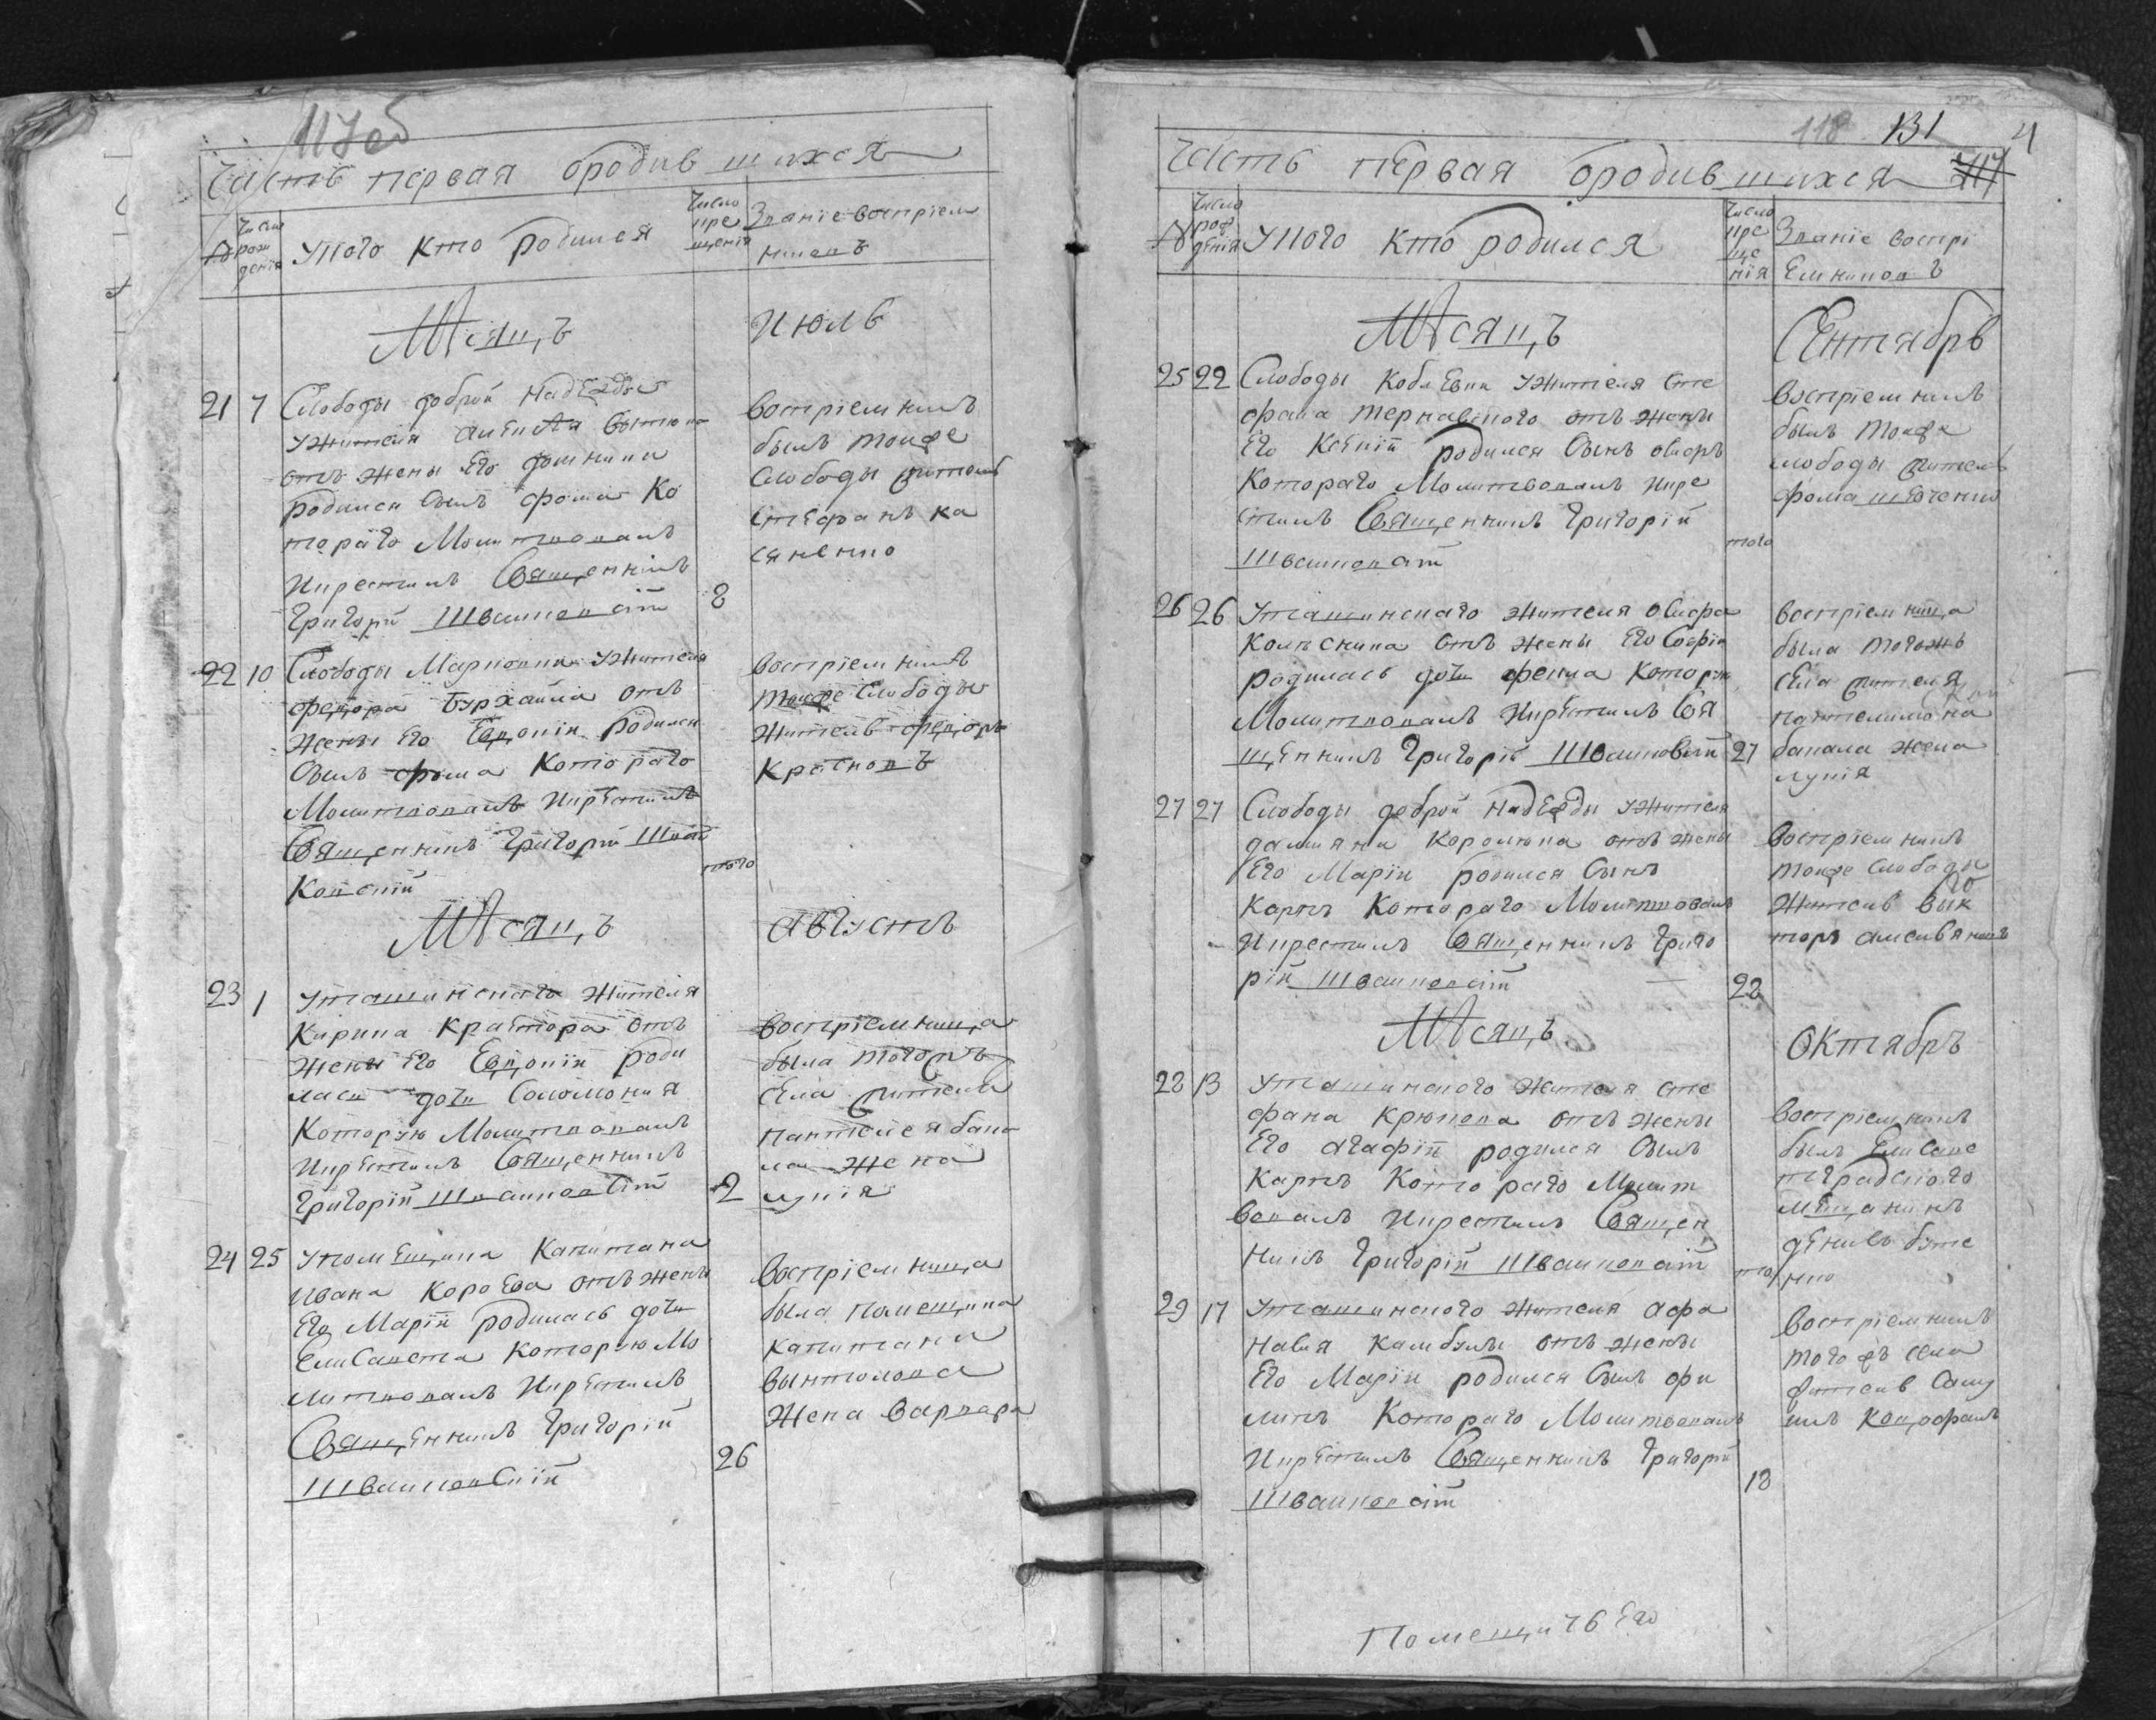 117об
Часть первая Ородив шихся
№
Число рож дения
У кого кто родился
Число кре щения
Звание восприем никовъ
Месяцъ
Июль
21 7 Слободы доброй надежды
ужителя
отъ жены Его
родился Сынъ фома Ко
тораго Молитвовалъ
Икрестилъ Священникъ
Григорій Шваиковсій
8
восприемникъ
былъ тойже
Слободы житель
Стефанъ ка
сяненко
22 10 Слободы Марковки ужителя
федора Бурхаила отъ
жены Его Евдокіи родился
Сынъ фома Которагo
Молитвовалъ Икрестилъ
Священникъ Григорій Шваи
Ковскій
того
восприемникъ
тойже Слободы
житель федоръ
Красновъ
Месяцъ
Августъ
23 1 Уташинскаго жителя
Кирика отъ
жены Его Евдокіи роди
лась дочь Соломония
Которую Молитвовалъ
Икрестилъ Священникъ
Григорій Шваиковсій
2
восприемница
была тогожъ
Села жителя
пантелея бака
ла жена
лукія
24 25 Упомещика Капитана
Ивана Короева отъ жены
Его Маріи родилась дочь
Елисавета которую Мо
литвовалъ Икрестилъ
Священникъ Григорій
Шваиковскій
26
восприемница
была помещика
капитана
вынтолова
Жена варвара
118 131 4
Часть первая Ородив шихся
№
Число рож дения
У кого кто родился
Число кре ще ния
Звание воспри Емниковъ
Месяцъ
Сентябрь
25 22 Слободы Коблевки ужителя Сте
фана тернавского отъ жены
Его Ксении родился Сынъ
Котораго Молитвовалъ Икре
стилъ Священникъ Григорій
Шваиковсій
того
восприемникъ
былъ тойже
слободы житель
фома шевченко
26 26 Уташинскаго жителя
колесника отъ жены Его Софіи
родилась дочь фекла которую
Молитвовалъ Икрестилъ Свя
щенникъ Григорій Шваиковсій
27
восприемница
была тогожъ
Села жителя
пантелимона
бакала жена
лукія
27 27 Слободы доброй надежды ужителя
дамияна Королюка отъ жены
Его Маріи родился Сынъ
Карпъ Котораго Молитвовалъ
Икрестилъ Священникъ Григо
рій Шваиковсій
28
восприемникъ
тойже Слободы
житель Вик
торъ
Месяцъ
Октябрь
28 13 Уташинского жителя сте
фана крюкова отъ жены
Его Агафіи родился Сынъ
Карпъ Котораго Молит
вовалъ Икрестилъ Священ
никъ Григорій Шваиковсій
того
восприемникъ
былъ Елисаве
тградского
мещанинъ
29 17 Уташинского жителя афа
насия Камбулы отъ жены
Его Маріи родился Сынъ фи
липъ Котораго Молитвовалъ
Икрестилъ Священникъ Григорій
Шваиковсій
18
восприемникъ
тогожъ села
житель Саму
илъ
Помещичь Его